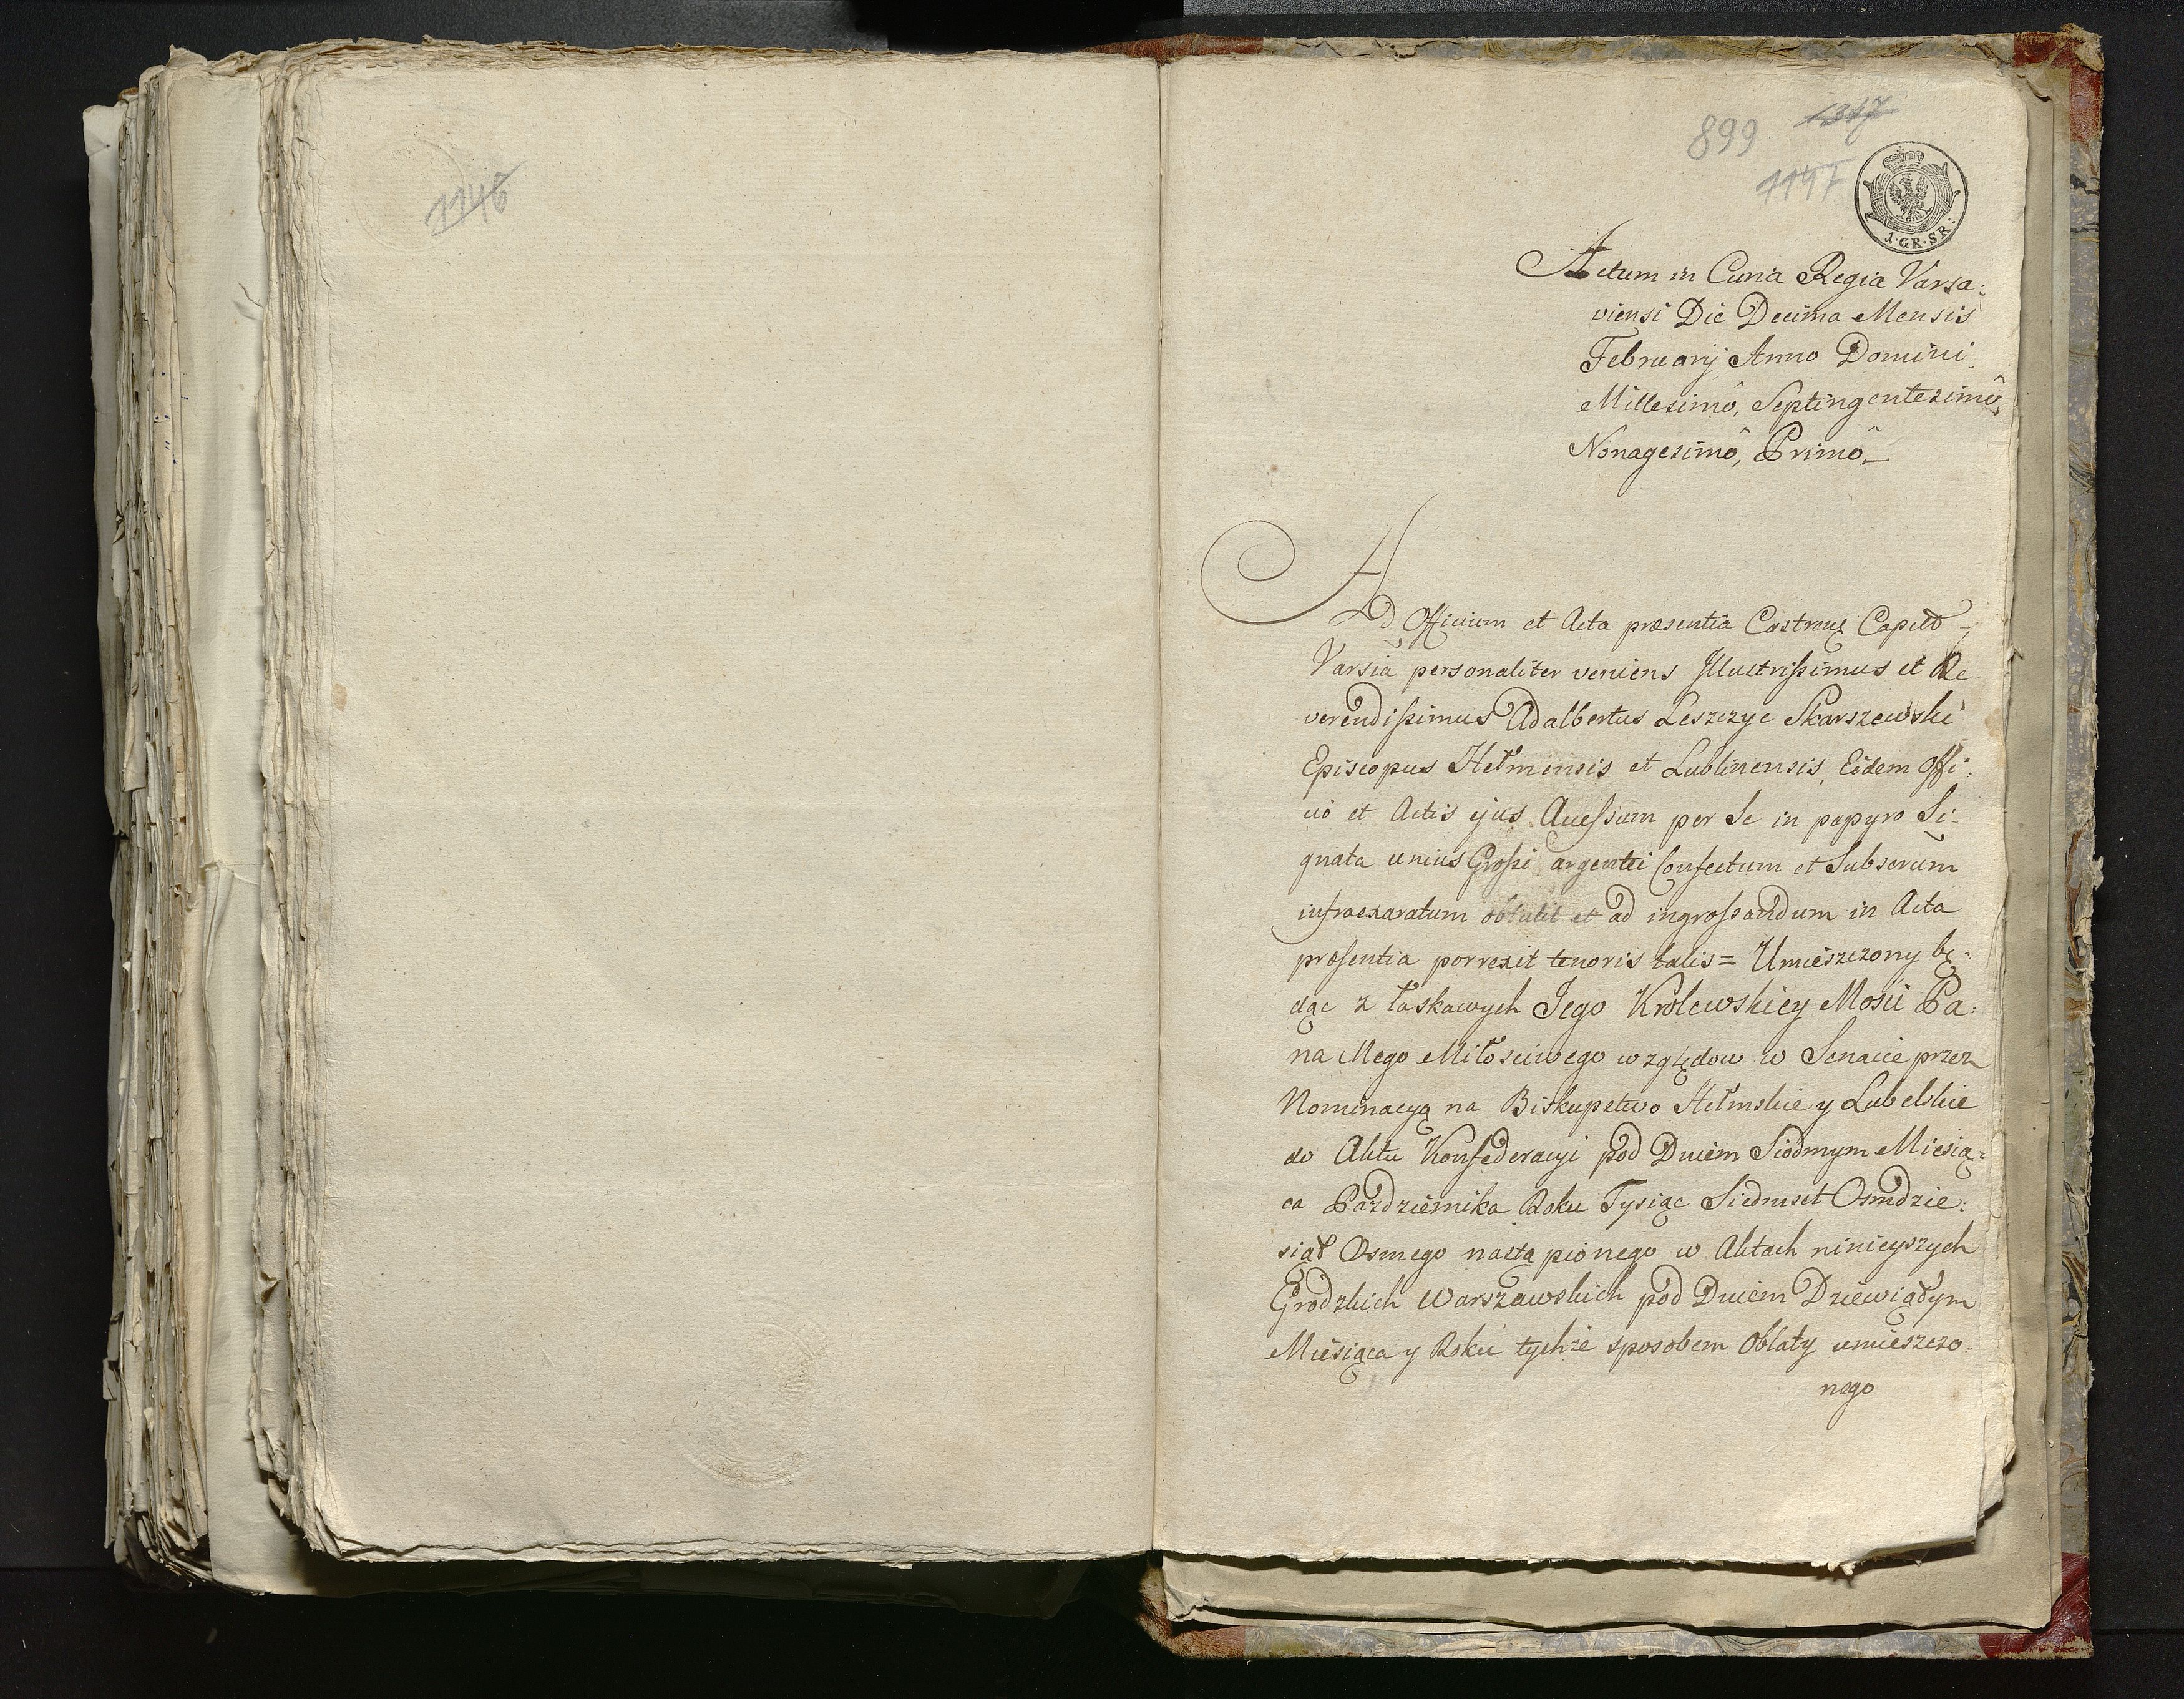 1146
899
1317
1147
1·GR·SR:
Actum in Curia Regia Varsa:
viensi Die Decima Mensis
Februarij Anno Domini
Millesimô, Septingentesimô,
Nonagesimô, Primô
Ad Officium et Acta præsentia Castren: Capit
Varsia personaliter veniens Jllustrissimus et Re
verendissimus Adalbertus Leszczyc Skarszewski
Episcopus Hełmensis et Lublinensis, Eidem Offi:
cio et Actis ejus Accessum per Se in papyro Si
gnata unius Grossi argentei Confectum et Subscrum
infraexaratum obtulit et ad ingrossandum in Acta
præsentia porrexit tenoris talis = Umieszczony bę:
dąc z łaskawych Jego Krolewskiey Mosci Pa:
na Mego Miłosciwego względow w Senacie przez
Nominacyą na Biskupstwo Hełmskie y Lubelskie
do Aktu Konfederacyi pod Dniem Siodmym Miesią:
ca Pazdziernika Roku Tysiąc Siedmset Osmdzie:
siąt Osmego nastąpionego w Aktach ninieyszych
Grodzkich Warszawskich pod Dniem Dziewiątym
Miesiąca y Roku tychże sposobem Oblaty umieszczo
nego